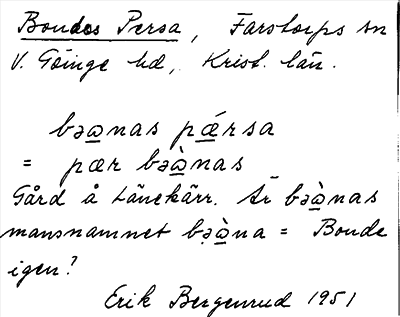 Bondos Persa, Farstorps sn
V. Göinge hd, Krist. län.
bəa̲nas pǽ̲rsa
= pær bəà̲nas
Gård å Lönekärr. Är bəà̲nas
mansnamnet bəà̲na = Bonde
igen?
Erik Bergenrud 1951